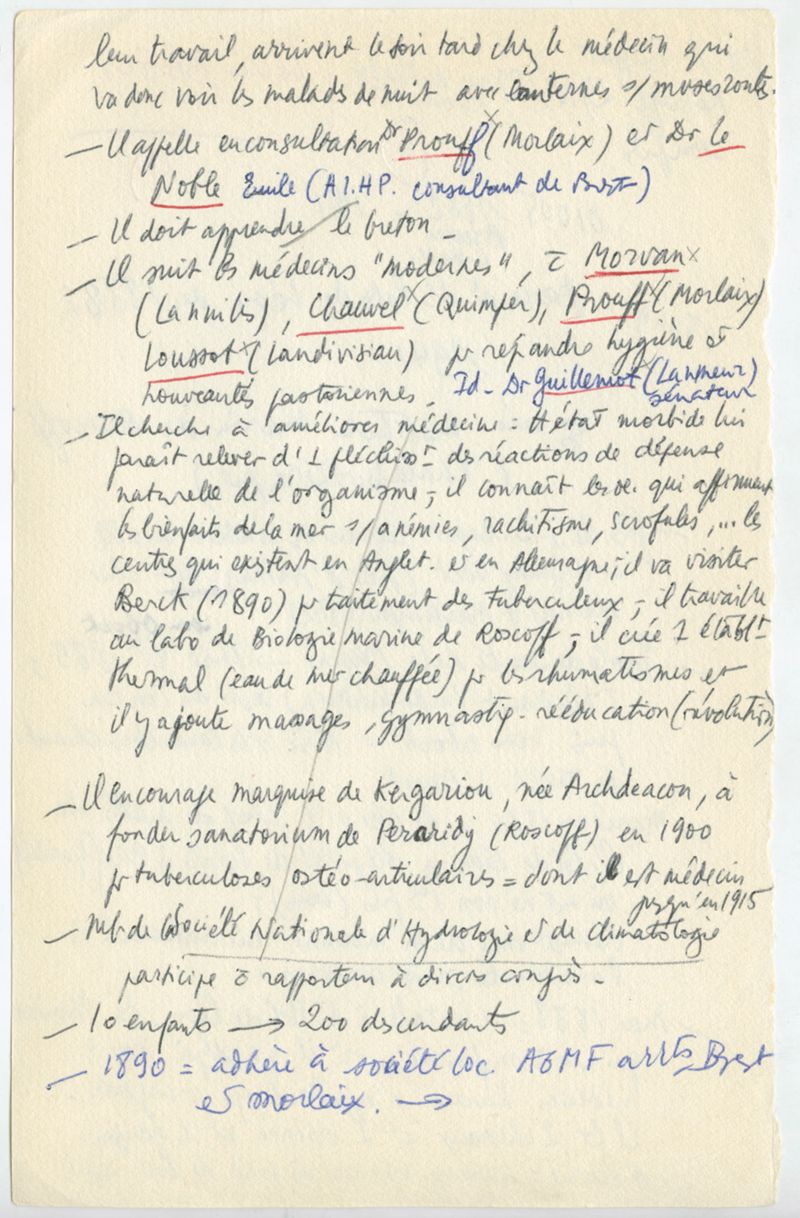 leur travail, arrivent le soir tard chez le médecin qui
va donc voir les malades de nuit avec lanternes s/ mvses routes.
— Il appelle en consultation Dr Prouff x (Morlaix) et Dr Le
Noble Emile (A.I.H.P. consultant de Brest)
— Il doit apprendre le breton —
— Il suit les médecins "modernes", c Morvan x
(Lannilis), Chauvel x (Quimper), Prouff x (Morlaix)
Loussot x (Landivisiau) pr répandre hygiène et
nouveautés pastoriennes. Id - Dr Guillemot (Lanmeur)
sénateur
— Il cherche à améliorer médecine = H état morbide lui
paraît relever d'1 fléchisst des réactions de défense
naturelle de l'organisme ; il connaît les qui affirment
les bienfaits de la mer s/ anémies, rachitisme, scrofules, ... les
centres qui existent en Anglet. et en Allemagne ; il va visiter
Berck (1890) pr traitement des tuberculeux ; il travaille
au labo de Biologie marine de Roscoff ; il crée 1 établt
thermal (eau de mer chauffée) pr les rhumatismes et
il y ajoute massages, gymnastiq. rééducation (révolution)
— Il encourage marquise de Kergariou, née Archdeacon, à
fonder sanatorium de Peraridy (Roscoff) en 1900
pr tuberculoses ostéo-articulaires = dont il est médecin
jusqu'en 1915
— Mb. de la Société Nationale d'Hydrologie et de Climatologie
participe c rapporteur à divers congrès -
— 10 enfants → 200 descendants
— 1890 = adhère à société loc. AGMF arrts Brest
et Morlaix. →